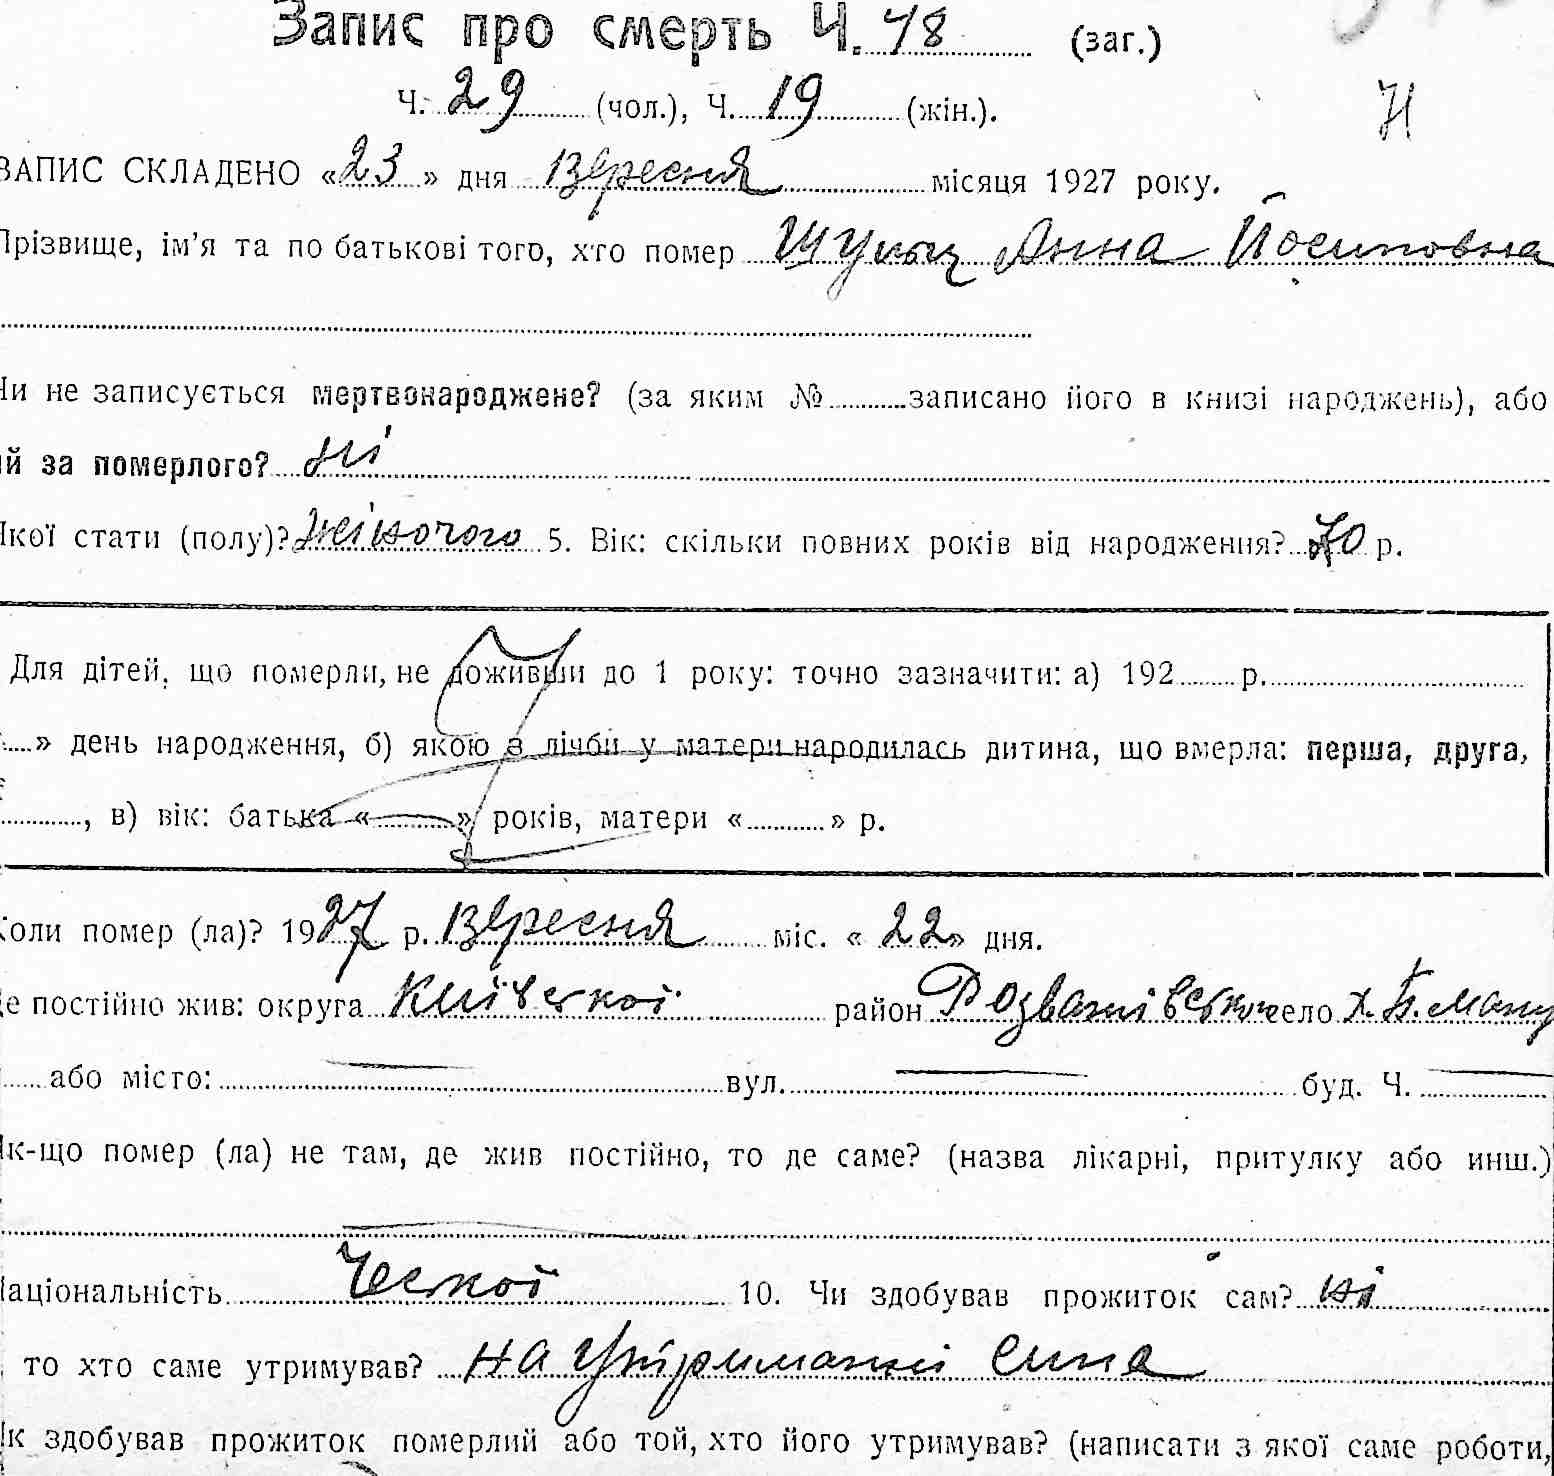 Запис про смерть Ч. 48 (заг.)
Ч. 29 (чол.), Ч. 19 (жін.).
Н
ЗАПИС СКЛАДЕНО «23» дня Вересня місяця 1927 року.
Прізвище, ім'я та по батькові того, хто помер Анна Йосиповна
Чи не записується мертвонароджене? (за яким № записано його в книзі народжень), або
ий за померлого? ні
Якої стати (полу)? жіночого 5. Вік: скільки повних років від народження? 70 р.
Для дітей, що померли, не доживши до 1 року: точно зазначити: а) 192 р.
» день народження, б) якою з лічби у матери народилась дитина, що вмерла: перша, друга,
, в) вік: батька « » років, матери « » р.
Коли помер (ла)? 1927 р. Вересня міс. «22» дня.
Де постійно жив: округа Київської район село х.
або місто: вул. буд. Ч.
Як-що помер (ла) не там, де жив постійно, то де саме? (назва лікарні, притулку або инш.)
Національність Ческої 10. Чи здобував прожиток сам? ні
то хто саме утримував? на утриманні сина
Як здобував прожиток померлий або той, хто його утримував? (написати з якої саме роботи,